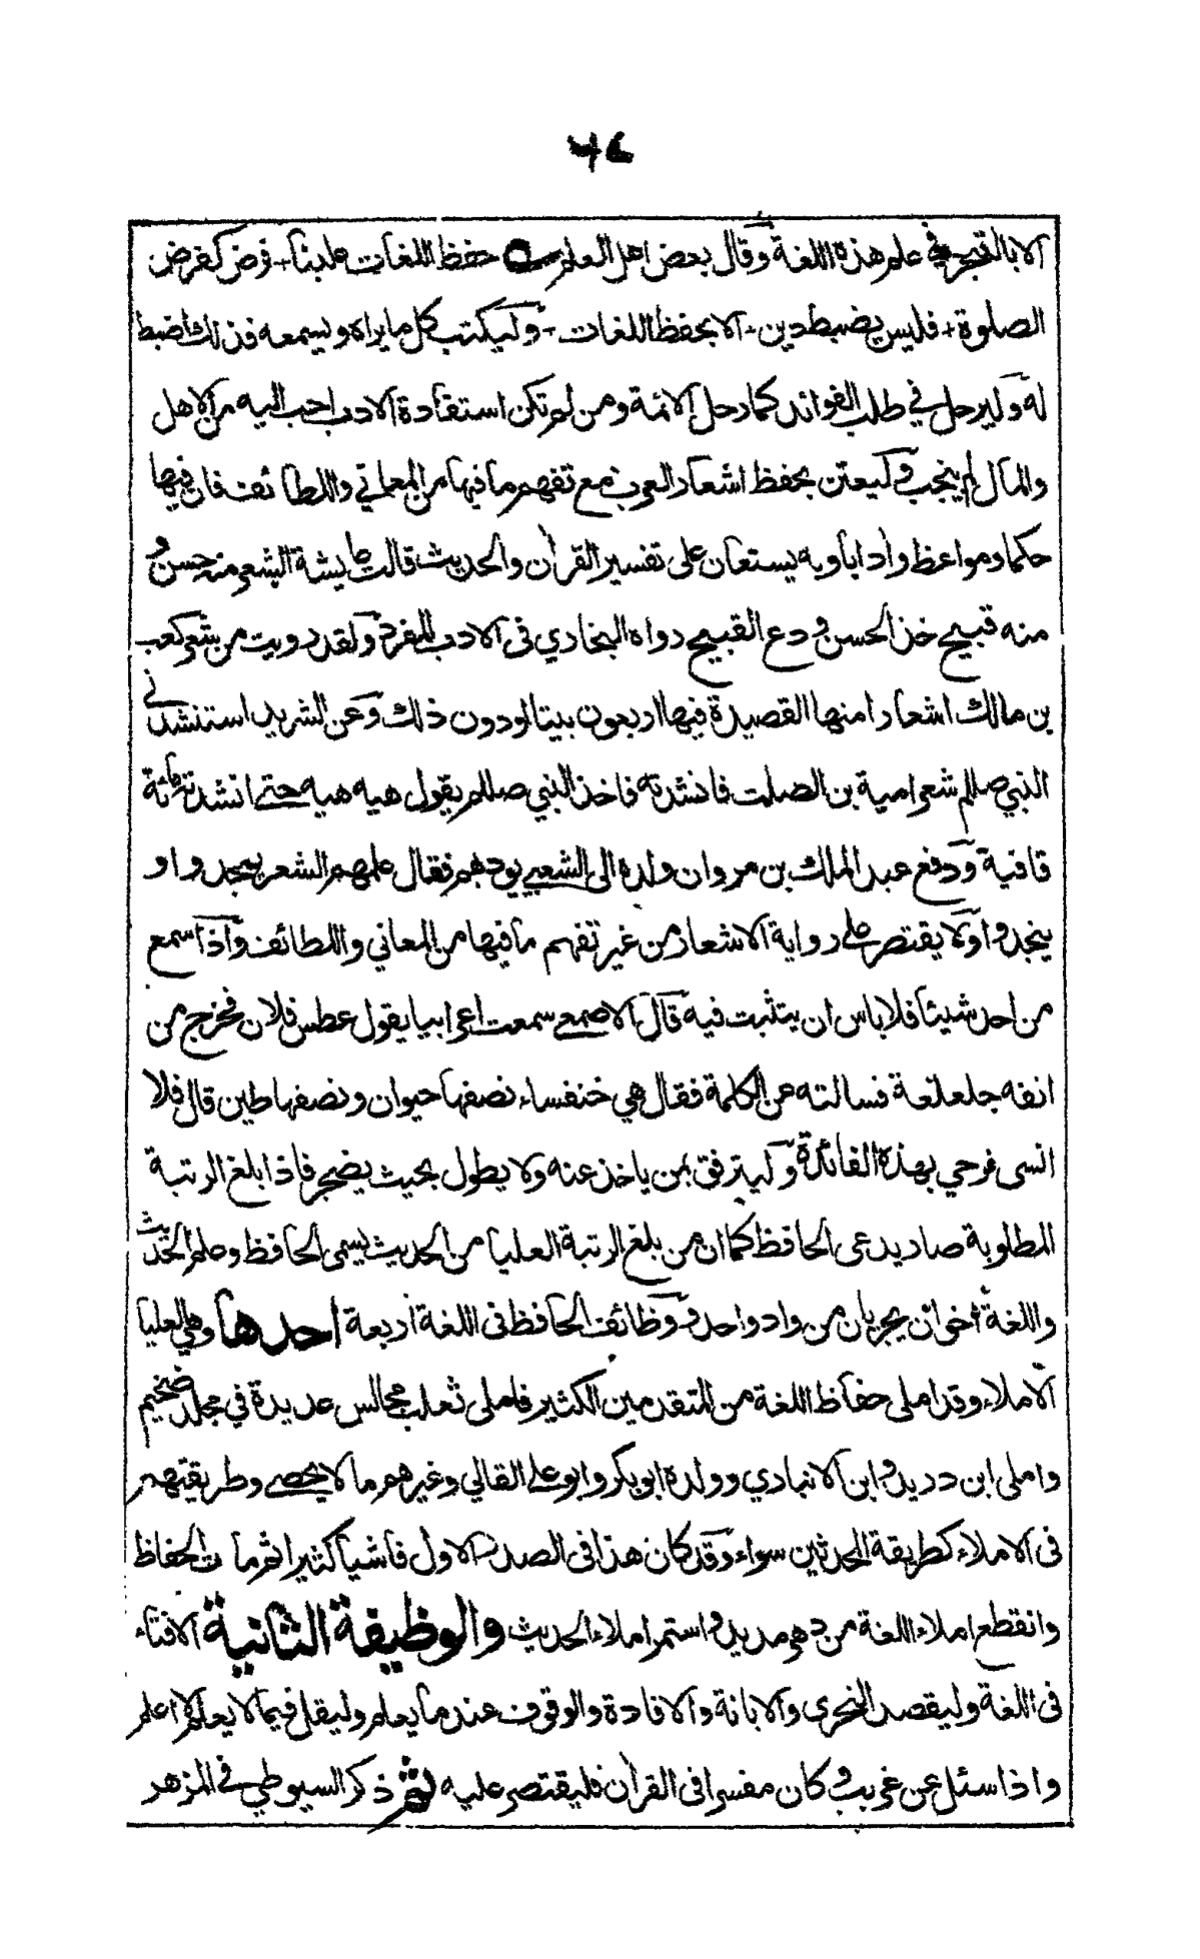 ٤٦
الا بالتبحر في علم هذه اللغة وقال بعض اهل العلم حفظ اللغات علينا + فرض كفرض
الصلوة + فليس يضبط دين + الا بحفظ اللغات + وليكتب كل ما يراه ويسمعه فذلك اضبط
له وليرحل في طلب الفوائد كما رحل الائمة ومن لم تكن استفادة الادب احب اليه من الاهل
والمال لم ينجب وليعتن بحفظ اشعار العرب مع تفهم ما فيها من المعاني واللطائف فان فيها
حكما ومواعظ وادابا وبه يستعان على تفسير القرأن والحديث قالت عايشة الشعر منه حسن و
منه قبيح خذ الحسن ودع القبيح رواه البخاري في الادب المفرد ولقد رويت من شعر كعب
بن مالك اشعارا منها القصيدة فيها اربعون بيتا ودون ذلك وعن الشريد استنشدني
النبي صللم شعر امية بن الصلت فانشدته فاخذ النبي صللم يقول هيه هيه حتى انشدته مائة
قافية ودفع عبد الملك بن مروان ولده الى الشعبي يودبهم فقال علمهم الشعر يمجدوا و
ينجدوا ولا يقتصر على رواية الاشعار من غير تفهم ما فيها من المعاني واللطائف واذا سمع
من احد شيئا فلا باس ان يتثبت فيه قال الاصمعي سمعت اعرابيا يقول عطس فلان فخرج من
انفه جلعلعة فسالته عن الكلمة فقال هي خنفساء نصفها حيوان ونصفها طين قال فلا
انسى فرحي بهذه الفائدة وليترفق بمن ياخذ عنه ولا يطول بحيث يضجر فاذا بلغ الرتبة
المطلوبة صار يدعى الحافظ كما ان من بلغ الرتبة العليا من الحديث يسمى الحافظ وعلم الحديث
واللغة اخوان يجريان من واد واحد ووظائف الحافظ في اللغة اربعة احدها وهي العليا
الاملاء وقد املى حفاظ اللغة من المتقدمين الكثير فاملى ثعلب مجالس عديدة في مجلد ضخيم
واملى ابن دريد وابن الانباري وولده ابو بكر وابو علي القالي وغيرهم ما لا يحصى وطريقتهم
في الاملاء كطريقة المحدثين سواء وقد كان هذا في الصدر الاول فاشيا كثيرا ثم ماتت الحفاظ
وانقطع املاء اللغة من دهر مديد واستمر املاء الحديث والوظيفة الثانية الافتاء
في اللغة وليقصد التحري والابانة والافادة والوقوف عند ما يعلم وليقل فيما لا يعلم لا اعلم
واذا سئل عن غريب وكان مفسرا في القرأن فليقتصر عليه ثم ذكر السيوطي في المزهر